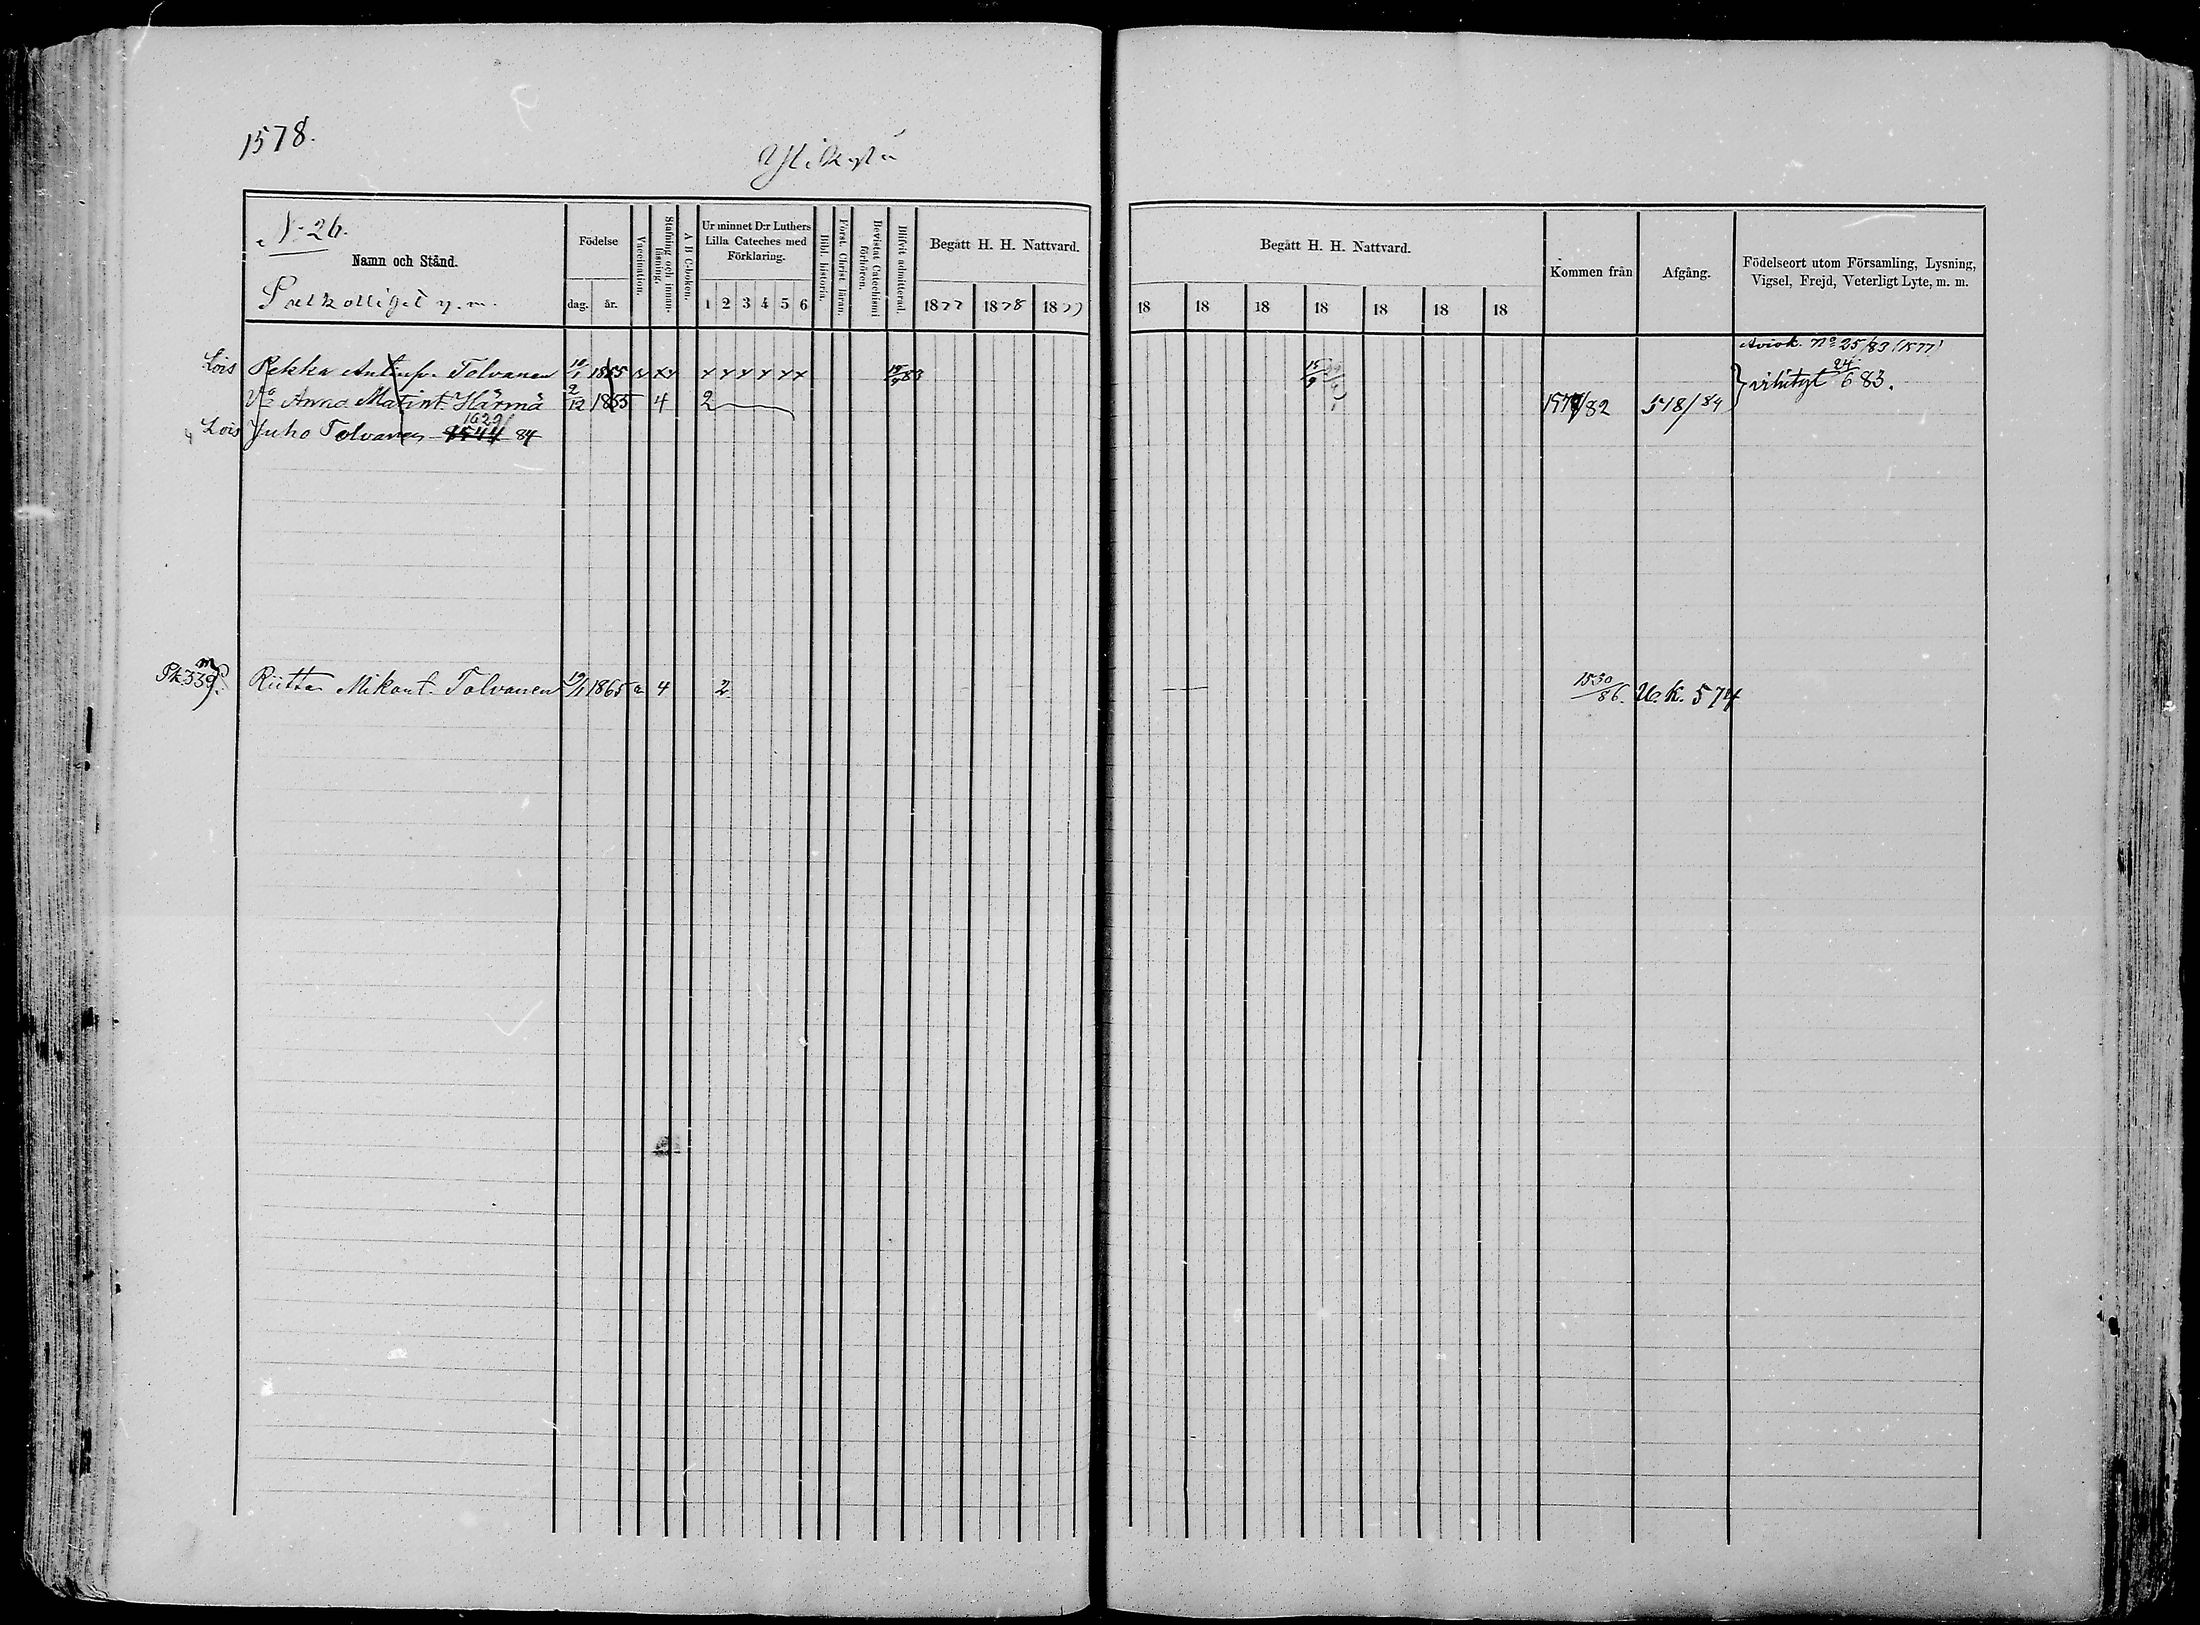 1578.
Ylikylä
No 26.
Namn och Stånd.
Födelse
dag. år.
Vaccination.
Stafning och innanläsning.
A B C-boken.
Ur minnet D:r Luthers Lilla Cateches med Förklaring.
1 2 3 4 5 6
Bibl. historia.
Först. Christ. läran.
Bevistat Catechismi förhören.
Blifvit admitterad.
Begått H. H. Nattvard.
1877 1878 1879
Begått H. H. Nattvard.
18 18 18 18 18 18 18
Kommen från
Afgång.
Födelseort utom Församling, Lysning, Vigsel, Frejd, Veterligt Lyte, m. m.
Aviok. No 25/83 (1577)
Lois Pekka Antinp. Tolvanen 1865 x x x x x x x 83
vihityt 24/6 83.
Va Anna Matint. Härmä 2/12 1855 4 2 82 518/84
1629
Lois Juho Tolvanen 1544 84
Pk 539. Riitta Mikont. Tolvanen 19/1 1865 4 2 1550/86. U.k. 574